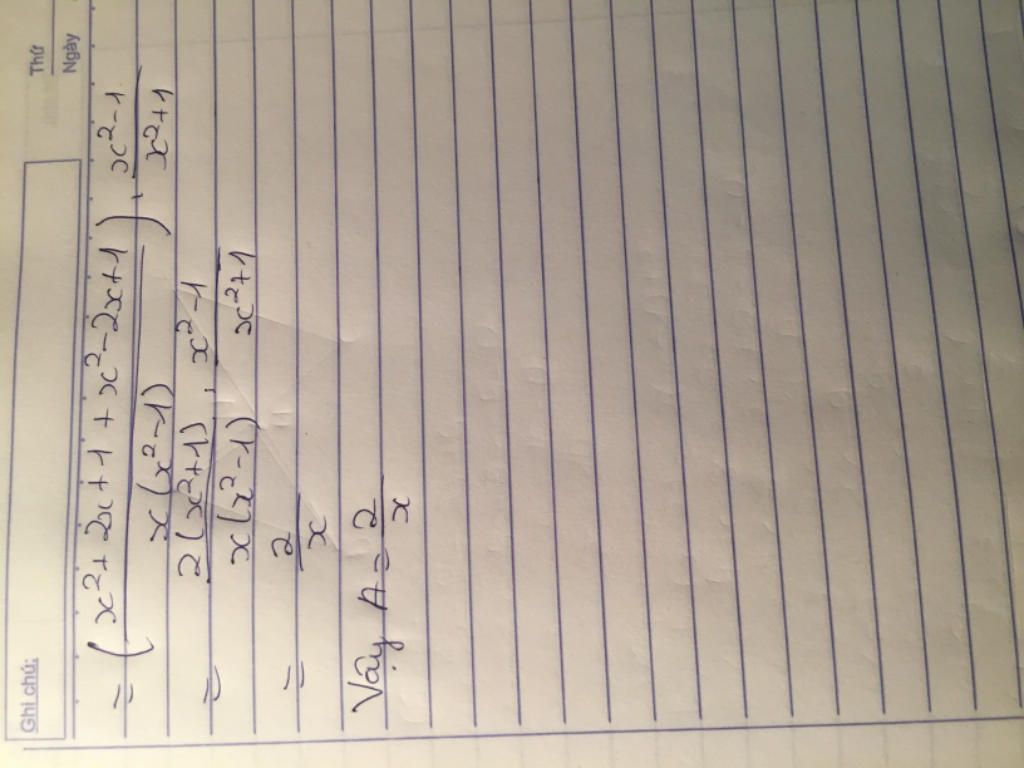 Ghi chú:
Thứ
Ngày
= ( x² + 2x + 1 + x² - 2x + 1 / x(x² - 1) ) . x² - 1 / x² + 1
= 2(x² + 1) / x(x² - 1) . x² - 1 / x² + 1
= 2 / x
Vậy A = 2 / x